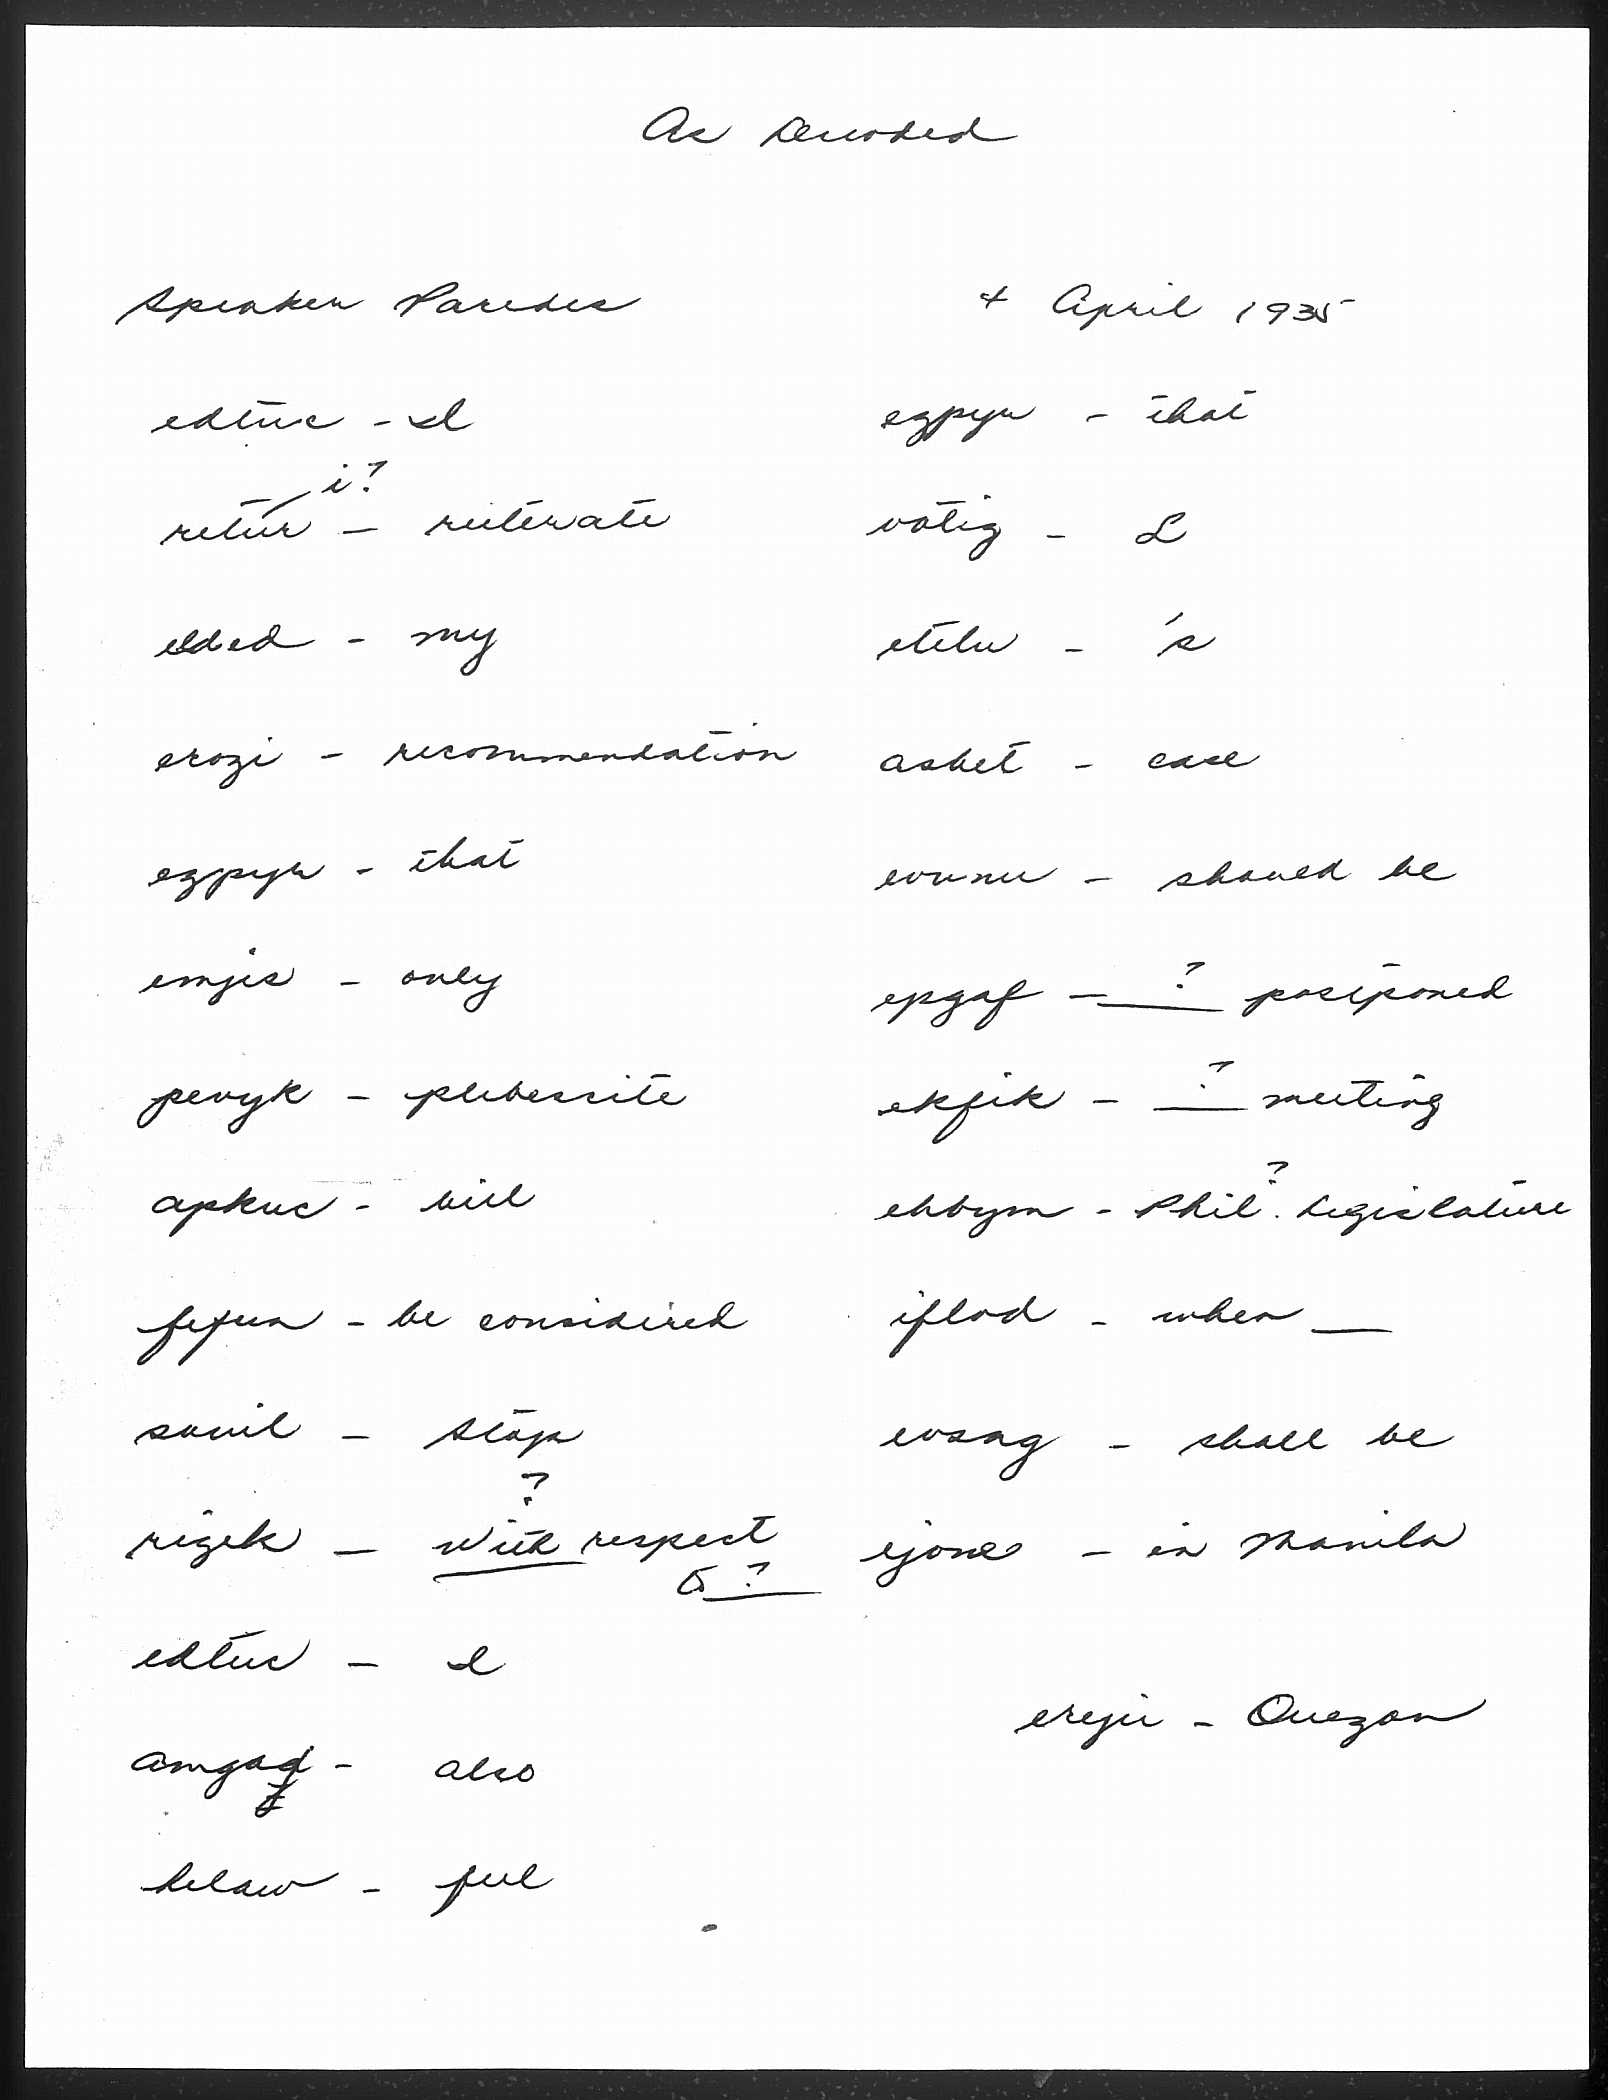 As Decoded
Speaker Paredes
4 April 1935
edtuc - I
i?
retur - reiterate
elded - my
erozi - recommendation
egpyr - that
emjis - only
pevyk - plebessite
apkuc - bill
fefun - be considered
sovil - stop
?
rizek - With respect
to ?
edtuc - I
amgad - also
z
belaw - feel
egpyr - that
votig - L
etelu - 's
asbet - case
evunu - should be
epgaf - ? postponed
ekfik - ? meeting
?
ehbym - Phil. Legislature
iflod - when
evsag - shall be
ejone - in Manila
ereju - Quezon